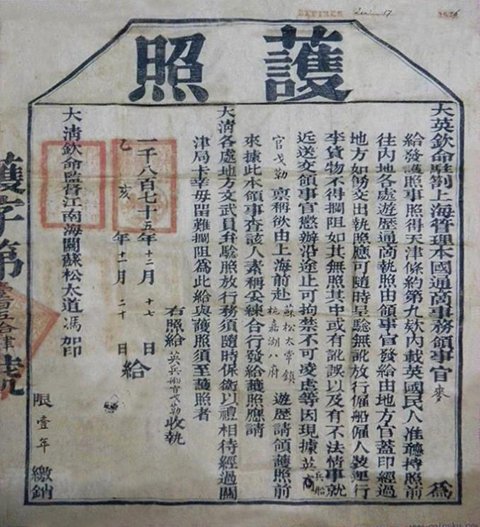 護照
大英欽命駐劄上海管理本國通商事務領事官麥 為
給發護照事照得天津條約第九欵內載英國民人准聽持照前
往內地各處遊歷通商執照由領事官發給由地方官蓋印經過
地方如飭交出執照應可隨時呈驗無訛放行僱船僱人裝運行
李貨物不得攔阻如其無照其中或有訛誤以及有不法情事就
近送交領事官懲辦沿途止可拘禁不可凌虐等因現據英商 兵船
官戈勒稟稱欲由上海前赴蘇松太常鎮 杭嘉湖八府遊歷請領護照前
來據此本領事查該人素稱妥練合行發給護照應請
大清各處地方文武員弁驗照放行務須隨時保衛以禮相待經過關
津局卡幸毋留難攔阻為此給與護照須至護照者
右照給英兵船官戈勒收執
一千八百七十五年十二月十七日
乙亥年十一月二十日給
大清欽命監督江南海關蘇松太道馮加印
限壹年繳銷
護字第
號